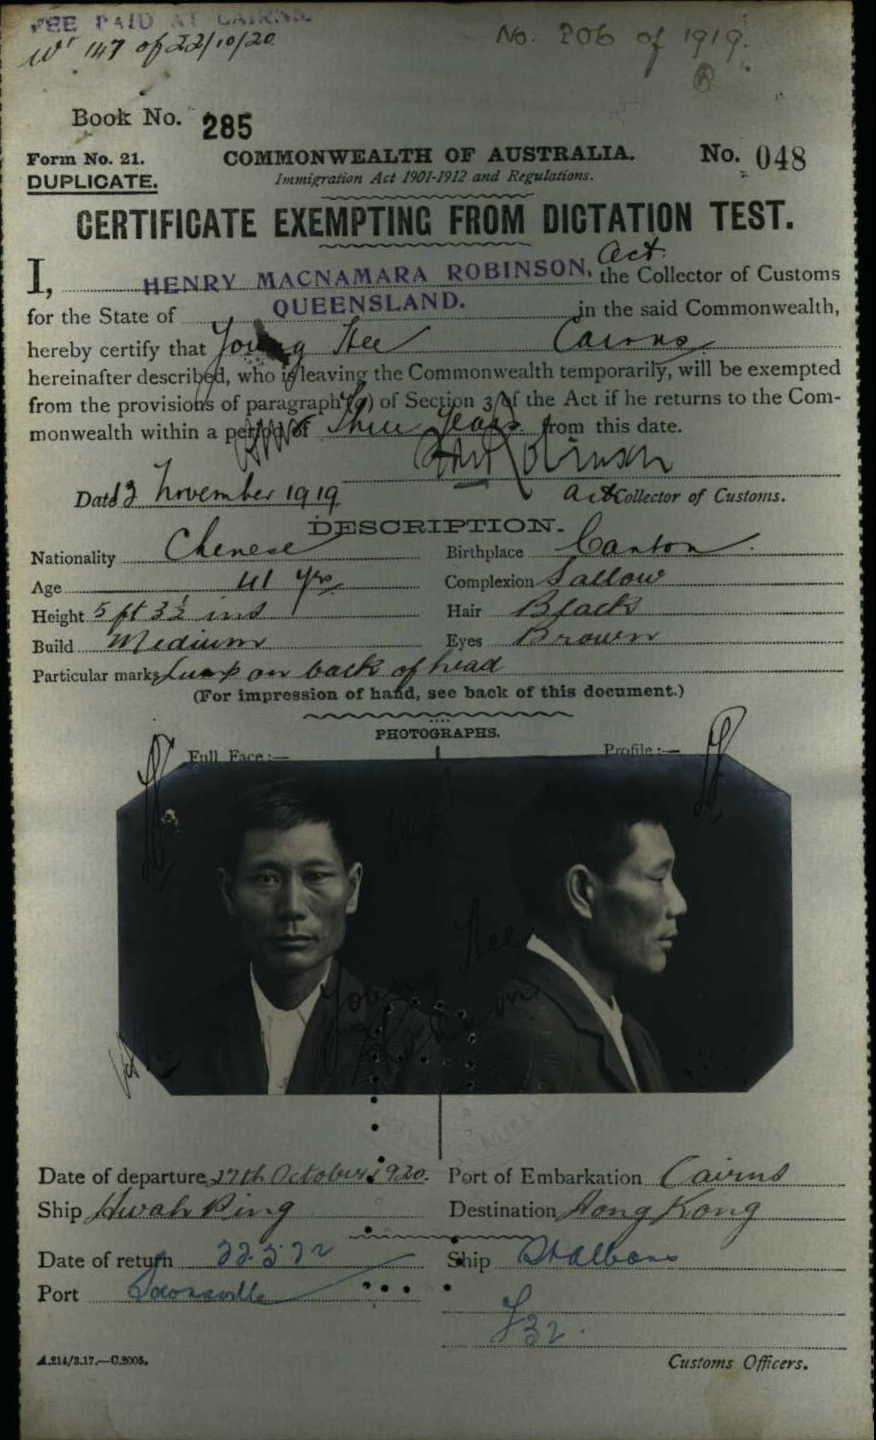 FEE PAID AT CAIRNS
147 of 22/10/20
No. 206 of 1919.
Book No. 285
Form No. 21. COMMONWEALTH OF AUSTRALIA. No. 048
DUPLICATE. Immigration Act 1901-1912 and Regulations.
CERTIFICATE EXEMPTING FROM DICTATION TEST.
Act.
I, HENRY MACNAMARA ROBINSON, the Collector of Customs
for the State of QUEENSLAND. in the said Commonwealth,
hereby certify that Young Hee Cairns
hereinafter described, who is leaving the Commonwealth temporarily, will be exempted
from the provisions of paragraph (a) of Section 3 of the Act if he returns to the Com-
monwealth within a period of Three Years from this date.
Robinson
Date 13 November 1919 Act Collector of Customs.
DESCRIPTION.
Nationality Chinese Birthplace Canton.
Age 41 yrs Complexion Sallow
Height 5 ft 3½ ins Hair Black
Build Medium Eyes Brown
Particular marks Lump on back of head
(For impression of hand, see back of this document.)
PHOTOGRAPHS.
Full Face :— Profile :—
Young Hee
Date of departure 27th October 1920. Port of Embarkation Cairns
Ship Hwah Ping Destination Hong Kong
Date of return 22.5.22 Ship St Albans
Port Townsville
A.214/3.17.—C.2005. Customs Officers.